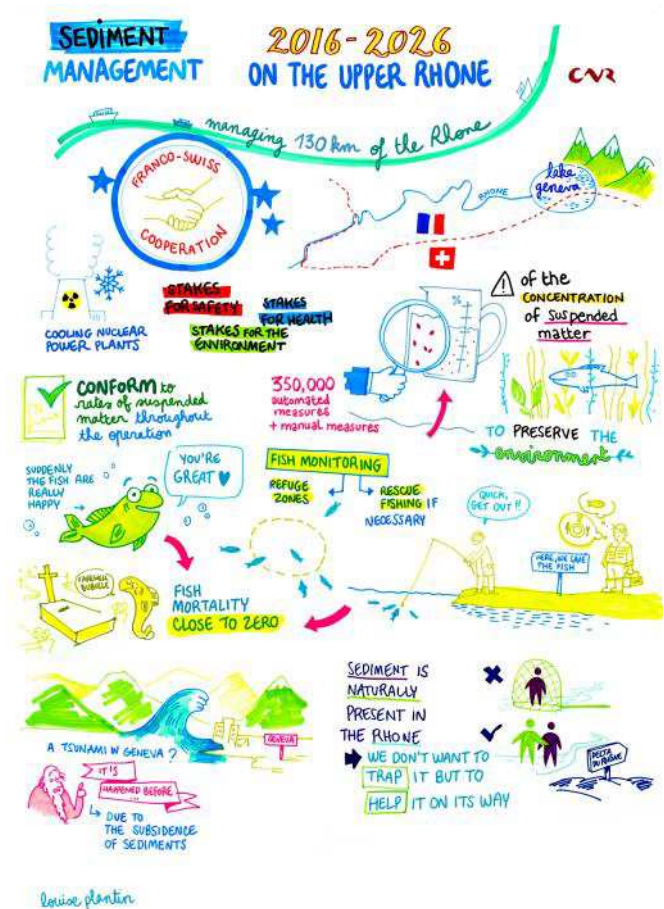 SEDIMENT
MANAGEMENT
2016-2026
ON THE UPPER RHONE
CNR
managing 130 km of the Rhone
FRANCO-SWISS
COOPERATION
RHONE
lake
geneva
COOLING NUCLEAR
POWER PLANTS
STAKES
FOR SAFETY
STAKES
FOR HEALTH
STAKES FOR THE
ENVIRONMENT
%
! of the
CONCENTRATION
of suspended
matter
CONFORM to
rates of suspended
matter throughout
the operation
350,000
automated
measures
+ manual measures
TO PRESERVE THE
environment
SUDDENLY
THE FISH ARE
REALLY
HAPPY
YOU'RE
GREAT
FISH MONITORING
REFUGE
ZONES
RESCUE
FISHING IF
NECESSARY
QUICK,
GET OUT !!
HERE, WE SAVE
THE FISH
FAREWELL
FISH
MORTALITY
CLOSE TO ZERO
GENEVA
A TSUNAMI IN GENEVA ?
IT'S
HAPPENED BEFORE...
DUE TO
THE SUBSIDENCE
OF SEDIMENTS
SEDIMENT IS
NATURALLY
PRESENT IN
THE RHONE
WE DON'T WANT TO
TRAP IT BUT TO
HELP IT ON ITS WAY
DELTA
DU RHONE
louise plantin